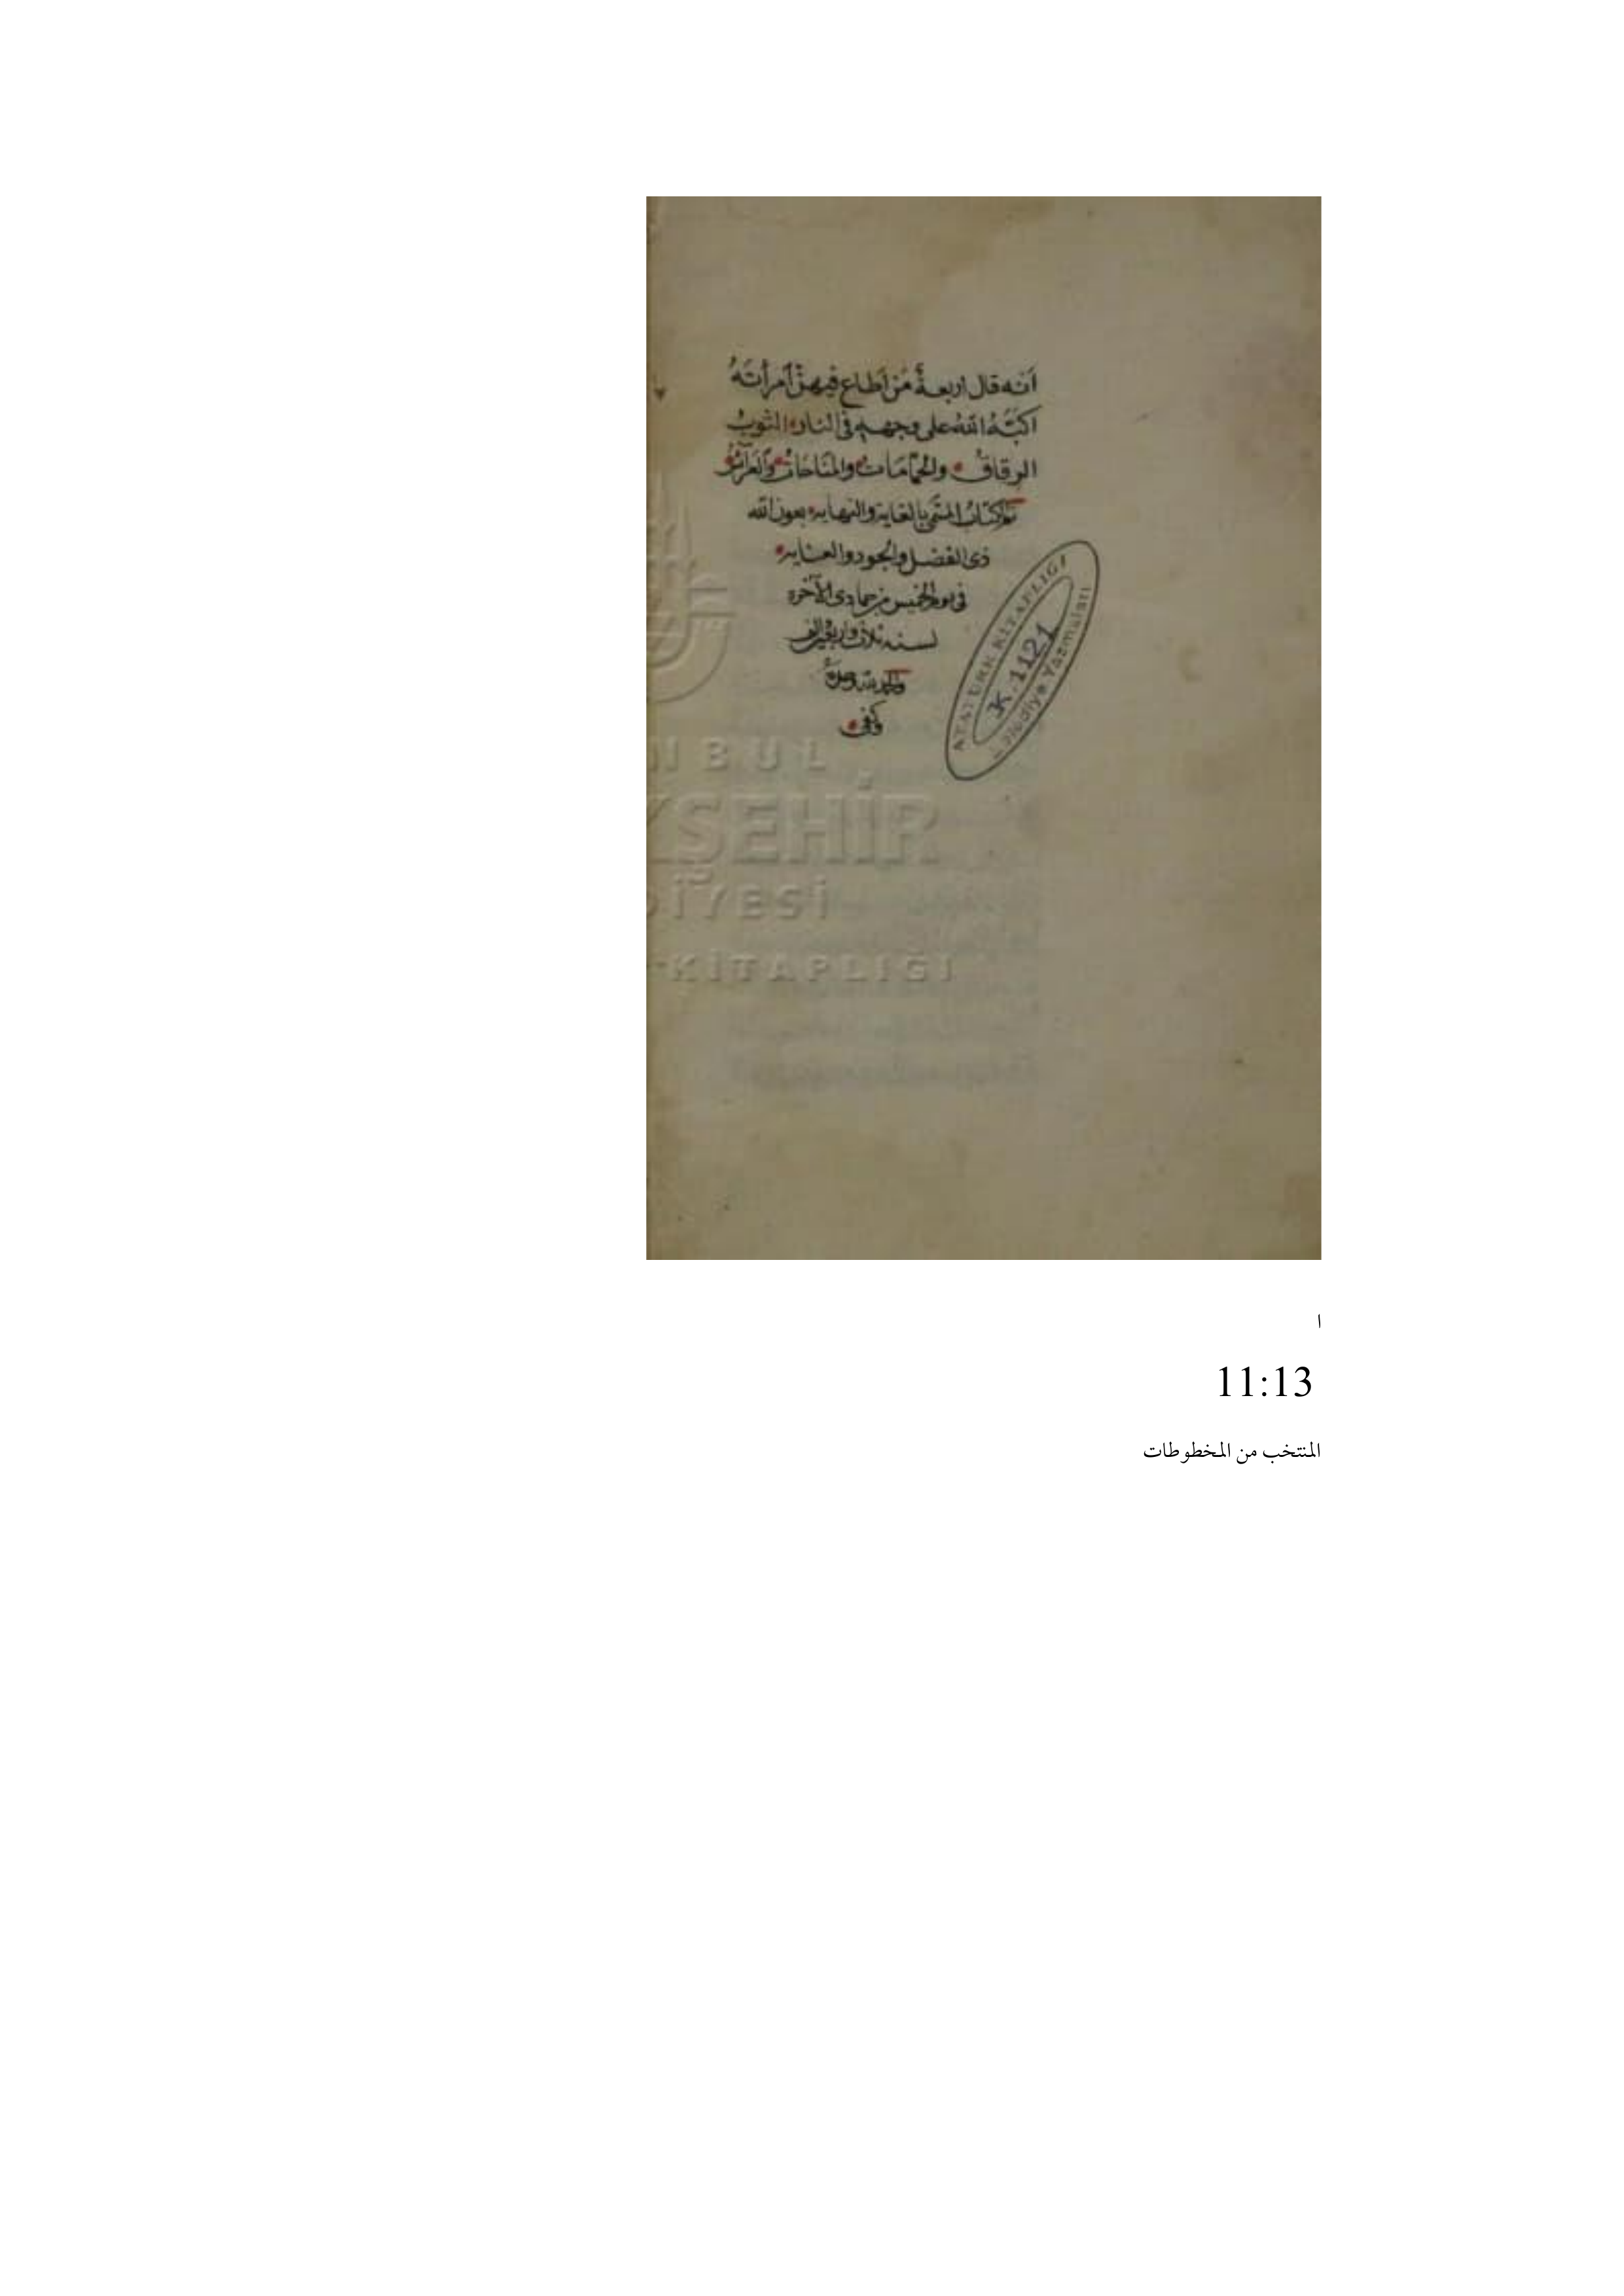 اَنه قال اربعةٌ مَن اَطاع فيهنَّ اَمرأتَهُ
اكبَّهُ اللهُ على وجههِ في النار الثوبُ
الرقاقُ والحمّامَاتُ والمنَاحَاتُ والعَرآئسُ
تم الكتابُ المسَمَّى بالغاية والنهاية بعون الله
ذى الفضل والجود والعنايه
في يوم الخميس من جمادى الآخره
لسنه ثلاث واربعين
والحمد لله وحدهُ
وكفى
ATATÜRK KİTAPLIĞI
K.1121
Belediye Yazmaları
NBUL
KŞEHİR
DİYESİ
KİTAPLIĞI
ا
11:13
المنتخب من المخطوطات